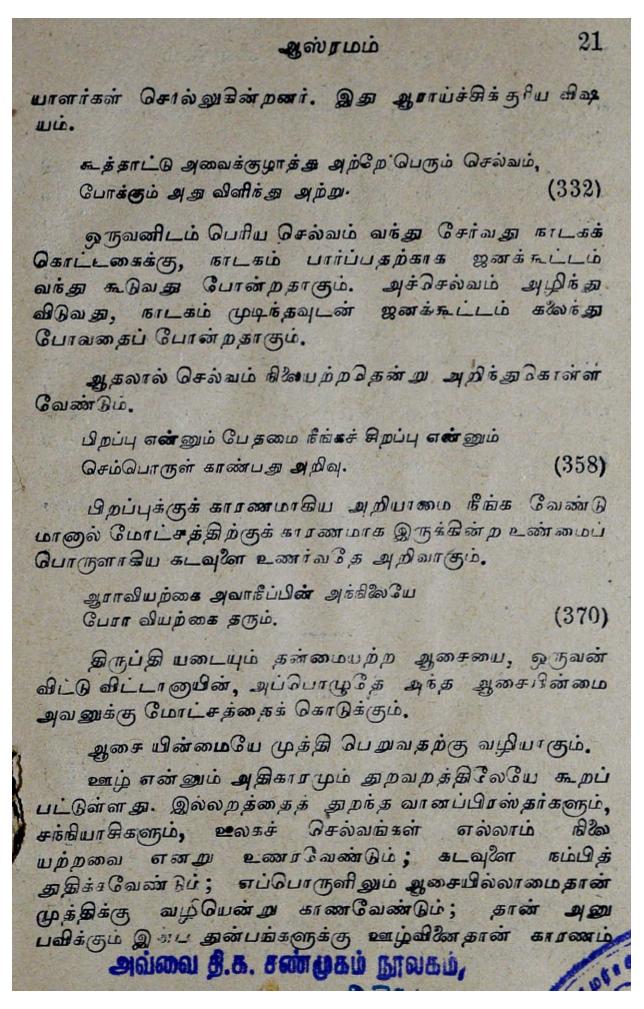 ஆஸ்ரமம் 21
யாளர்கள் சொல்லுகின்றனர். இது ஆராய்ச்சிக்குரிய விஷ
யம்.
கூத்தாட்டு அவைக்குழாத்து அற்றே பெரும் செல்வம்,
போக்கும் அது விளிந்து அற்று. (332)
ஒருவனிடம் பெரிய செல்வம் வந்து சேர்வது நாடகக்
கொட்டகைக்கு, நாடகம் பார்ப்பதற்காக ஜனக்கூட்டம்
வந்து கூடுவது போன்றதாகும். அச்செல்வம் அழிந்து
விடுவது, நாடகம் முடிந்தவுடன் ஜனக்கூட்டம் கலைந்து
போவதைப் போன்றதாகும்.
ஆதலால் செல்வம் நிலையற்றதென்று அறிந்துகொள்ள
வேண்டும்.
பிறப்பு என்னும் பேதமை நீங்கச் சிறப்பு என்னும்
செம்பொருள் காண்பது அறிவு. (358)
பிறப்புக்குக் காரணமாகிய அறியாமை நீங்க வேண்டு
மானால் மோட்சத்திற்குக் காரணமாக இருக்கின்ற உண்மைப்
பொருளாகிய கடவுளை உணர்வதே அறிவாகும்.
ஆராவியற்கை அவாநீப்பின் அந்நிலையே
பேரா வியற்கை தரும். (370)
திருப்தி யடையும் தன்மையற்ற ஆசையை, ஒருவன்
விட்டு விட்டானாயின், அப்பொழுதே அந்த ஆசையின்மை
அவனுக்கு மோட்சத்தைக் கொடுக்கும்.
ஆசை யின்மையே முத்தி பெறுவதற்கு வழியாகும்.
ஊழ் என்னும் அதிகாரமும் துறவறத்திலேயே கூறப்
பட்டுள்ளது. இல்லறத்தைத் துறந்த வானப்பிரஸ்தர்களும்,
சந்நியாசிகளும், ஊலகச் செல்வங்கள் எல்லாம் நிலை
யற்றவை எனறு உணரவேண்டும்; கடவுளை நம்பித்
துதிக்கவேண்டும்; எப்பொருளிலும் ஆசையில்லாமைதான்
முத்திக்கு வழியென்று காணவேண்டும்; தான் அனு
பவிக்கும் இன்ப துன்பங்களுக்கு ஊழ்வினைதான் காரணம்
அவ்வை தி.க. சண்முகம் நூலகம்,